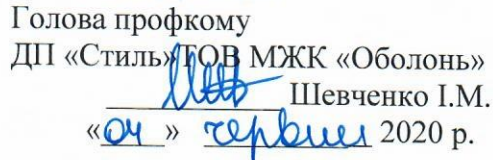 Голова профкому
ДП «Стиль»ТОВ МЖК «Оболонь»
Шевченко І.М.
«04» червня 2020 р.